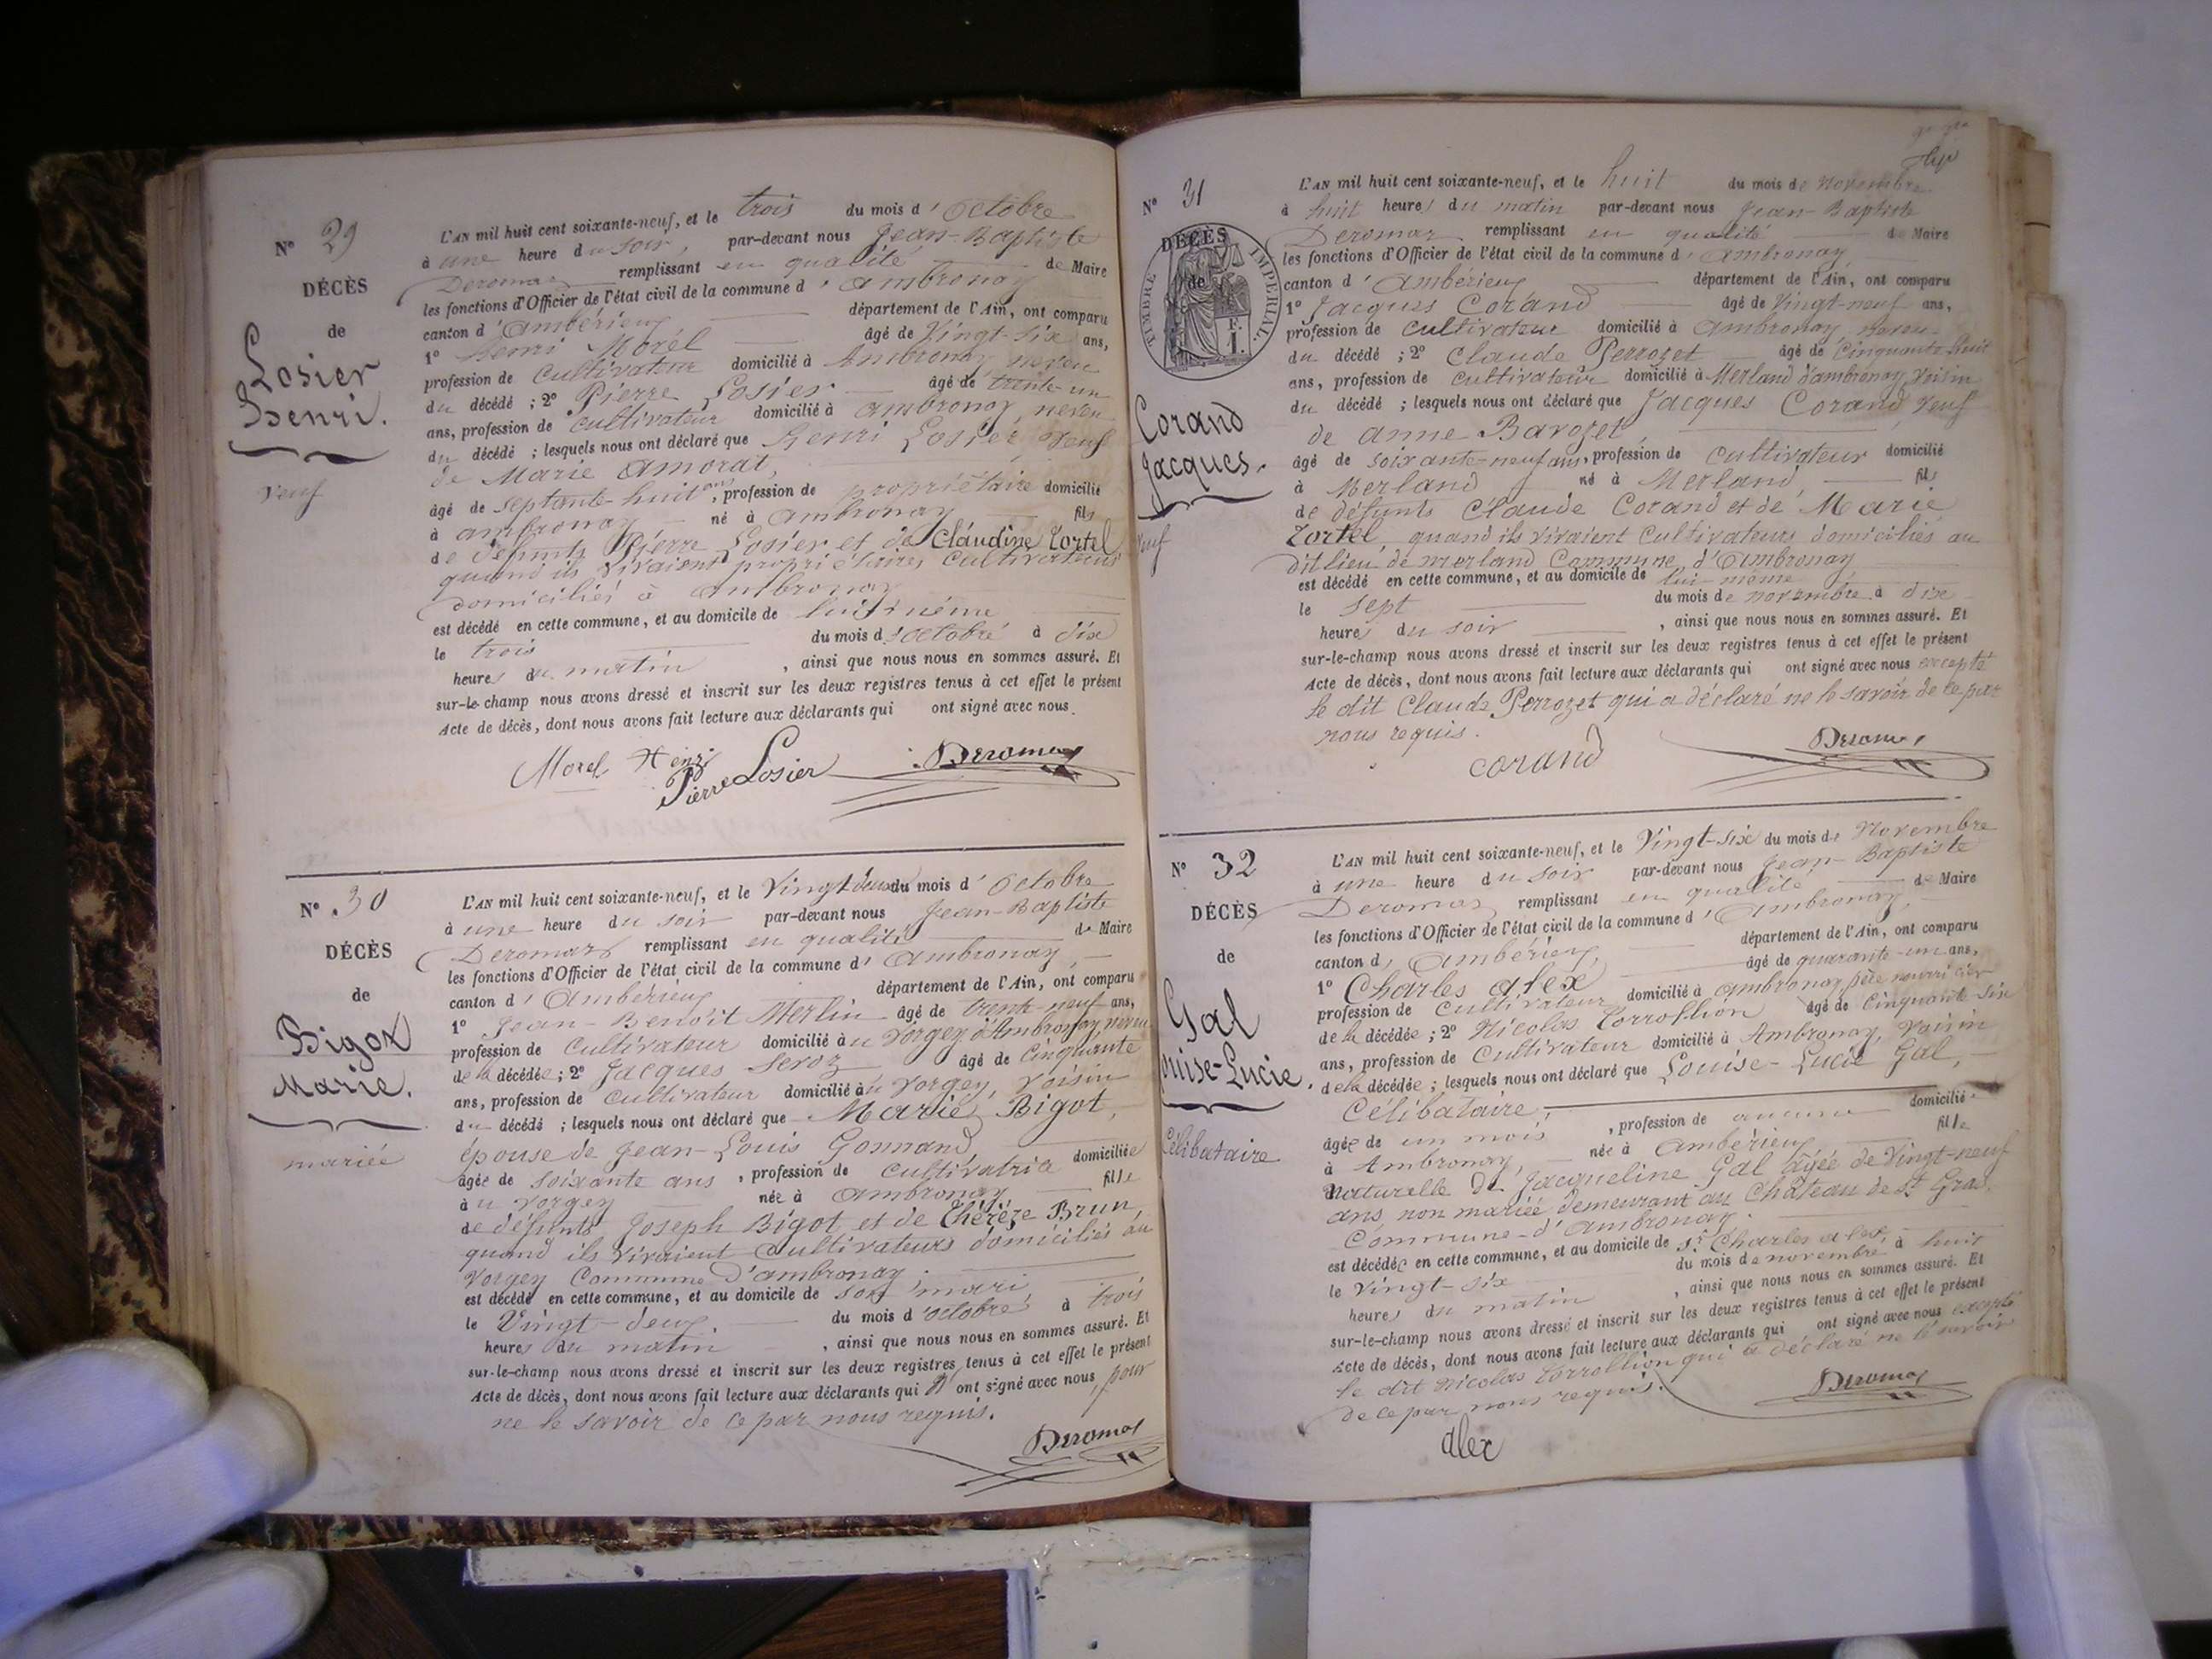 N° 29
DÉCÈS
de
Losier
Henri.
veuf
L'AN mil huit cent soixante-neuf, et le trois du mois d'Octobre
à une heure du soir, par-devant nous Jean-Baptiste
Deromas remplissant en qualité de Maire
les fonctions d'Officier de l'état civil de la commune d'Ambronay
canton d'Ambérieux département de l'Ain, ont comparu
1° Henri Morel âgé de Vingt-six ans,
profession de Cultivateur domicilié à Ambronay, neveu
du décédé ; 2° Pierre Losier âgé de trente-un
ans, profession de cultivateur domicilié à Ambronay, neveu
du décédé ; lesquels nous ont déclaré que Henri Losier veuf
de Marie Amorat,
âgé de septante-huit ans, profession de propriétaire domicilié
à ambronay né à Ambronay fils
de défunts Pierre Losier et de Claudine Tortel
quand ils vivaient propriétaires cultivateurs
domiciliés à Ambronay
est décédé en cette commune, et au domicile de lui-même
le trois du mois d'Octobre à dix
heures du matin, ainsi que nous nous en sommes assuré. Et
sur-le-champ nous avons dressé et inscrit sur les deux registres tenus à cet effet le présent
Acte de décès, dont nous avons fait lecture aux déclarants qui ont signé avec nous.
Morel Henri
Pierre Losier Deromas
N° 30
DÉCÈS
de
Bigot
Marie.
mariée
L'AN mil huit cent soixante-neuf, et le Vingt deux du mois d'Octobre
à une heure du soir par-devant nous Jean-Baptiste
Deromas remplissant en qualité de Maire
les fonctions d'Officier de l'état civil de la commune d'Ambronay,
canton d'Ambérieux département de l'Ain, ont comparu
1° Jean-Benoit Merlin âgé de trente-neuf ans,
profession de Cultivateur domicilié au Vorgey d'Ambronay, neveu
de la décédée ; 2° Jacques Seroz âgé de Cinquante
ans, profession de Cultivateur domicilié au Vorgey, Voisin
du décédé ; lesquels nous ont déclaré que Marie Bigot,
épouse de Jean-Louis Gonnand
âgée de soixante ans, profession de cultivatrice domiciliée
au Vorgey née à Ambronay fille
de défunts Joseph Bigot et de Thérèze Brun,
quand ils vivaient Cultivateurs domiciliés au
Vorgey Commune d'ambronay.
est décédé en cette commune, et au domicile de son mari
le Vingt-deux. du mois d'octobre à trois
heures du matin, ainsi que nous nous en sommes assuré. Et
sur-le-champ nous avons dressé et inscrit sur les deux registres tenus à cet effet le présent
Acte de décès, dont nous avons fait lecture aux déclarants qui n'ont signé avec nous, pour
ne le savoir de ce par nous requis.
Deromas
N° 31
DÉCÈS
de
TIMBRE IMPERIAL
Corand
Jacques.
veuf
L'AN mil huit cent soixante-neuf, et le huit du mois de Novembre
à huit heures du matin par-devant nous Jean-Baptiste
Deromas remplissant en qualité de Maire
les fonctions d'Officier de l'état civil de la commune d'Ambronay
canton d'Ambérieux département de l'Ain, ont comparu
1° Jacques Corand âgé de Vingt-neuf ans,
profession de cultivateur domicilié à Ambronay, neveu
du décédé ; 2° Claude Perrozet âgé de Cinquante-huit
ans, profession de cultivateur domicilié à Merland d'ambronay, Voisin
du décédé ; lesquels nous ont déclaré que Jacques Corand Veuf
de Anne Barozet
âgé de soixante-neuf ans, profession de cultivateur domicilié
à Merland né à Merland, fils
de défunts Claude Corand et de Marie
Tortel quand ils vivaient cultivateurs domiciliés au
dit lieu de merland Commune d'Ambronay
est décédé en cette commune, et au domicile de lui-même
le sept du mois de novembre à dix
heures du soir, ainsi que nous nous en sommes assuré. Et
sur-le-champ nous avons dressé et inscrit sur les deux registres tenus à cet effet le présent
Acte de décès, dont nous avons fait lecture aux déclarants qui ont signé avec nous excepté
le dit Claude Perrozet qui a déclaré ne le savoir de ce par
nous requis.
corand Deromas
N° 32
DÉCÈS
de
Gal
Louise-Lucie.
Célibataire
L'AN mil huit cent soixante-neuf, et le Vingt-six du mois de Novembre
à une heure du soir par-devant nous Jean-Baptiste
Deromas remplissant en qualité de Maire
les fonctions d'Officier de l'état civil de la commune d'Ambronay,
canton d'Ambérieux, département de l'Ain, ont comparu
1° Charles Alex âgé de quarante-un ans,
profession de Cultivateur domicilié à ambronay, père nourricier
de la décédée ; 2° Nicolas âgé de Cinquante six
ans, profession de Cultivateur domicilié à Ambronay, Voisin
de la décédée ; lesquels nous ont déclaré que Louise-Lucie Gal,
Célibataire,
âgée de un mois, profession de aucune domicilié
à Ambronay, née à Ambérieux fille
naturelle de Jacqueline Gal âgée de Vingt-neuf
ans, non mariée demeurant au Château de St Gras
Commune d'Ambronay.
est décédée en cette commune, et au domicile de Sr. Charles alex,
le Vingt-six du mois de novembre à huit
heures du matin, ainsi que nous nous en sommes assuré. Et
sur-le-champ nous avons dressé et inscrit sur les deux registres tenus à cet effet le présent
Acte de décès, dont nous avons fait lecture aux déclarants qui ont signé avec nous excepté
le dit Nicolas qui a déclaré ne le savoir
de ce par nous requis.
Deromas
alex